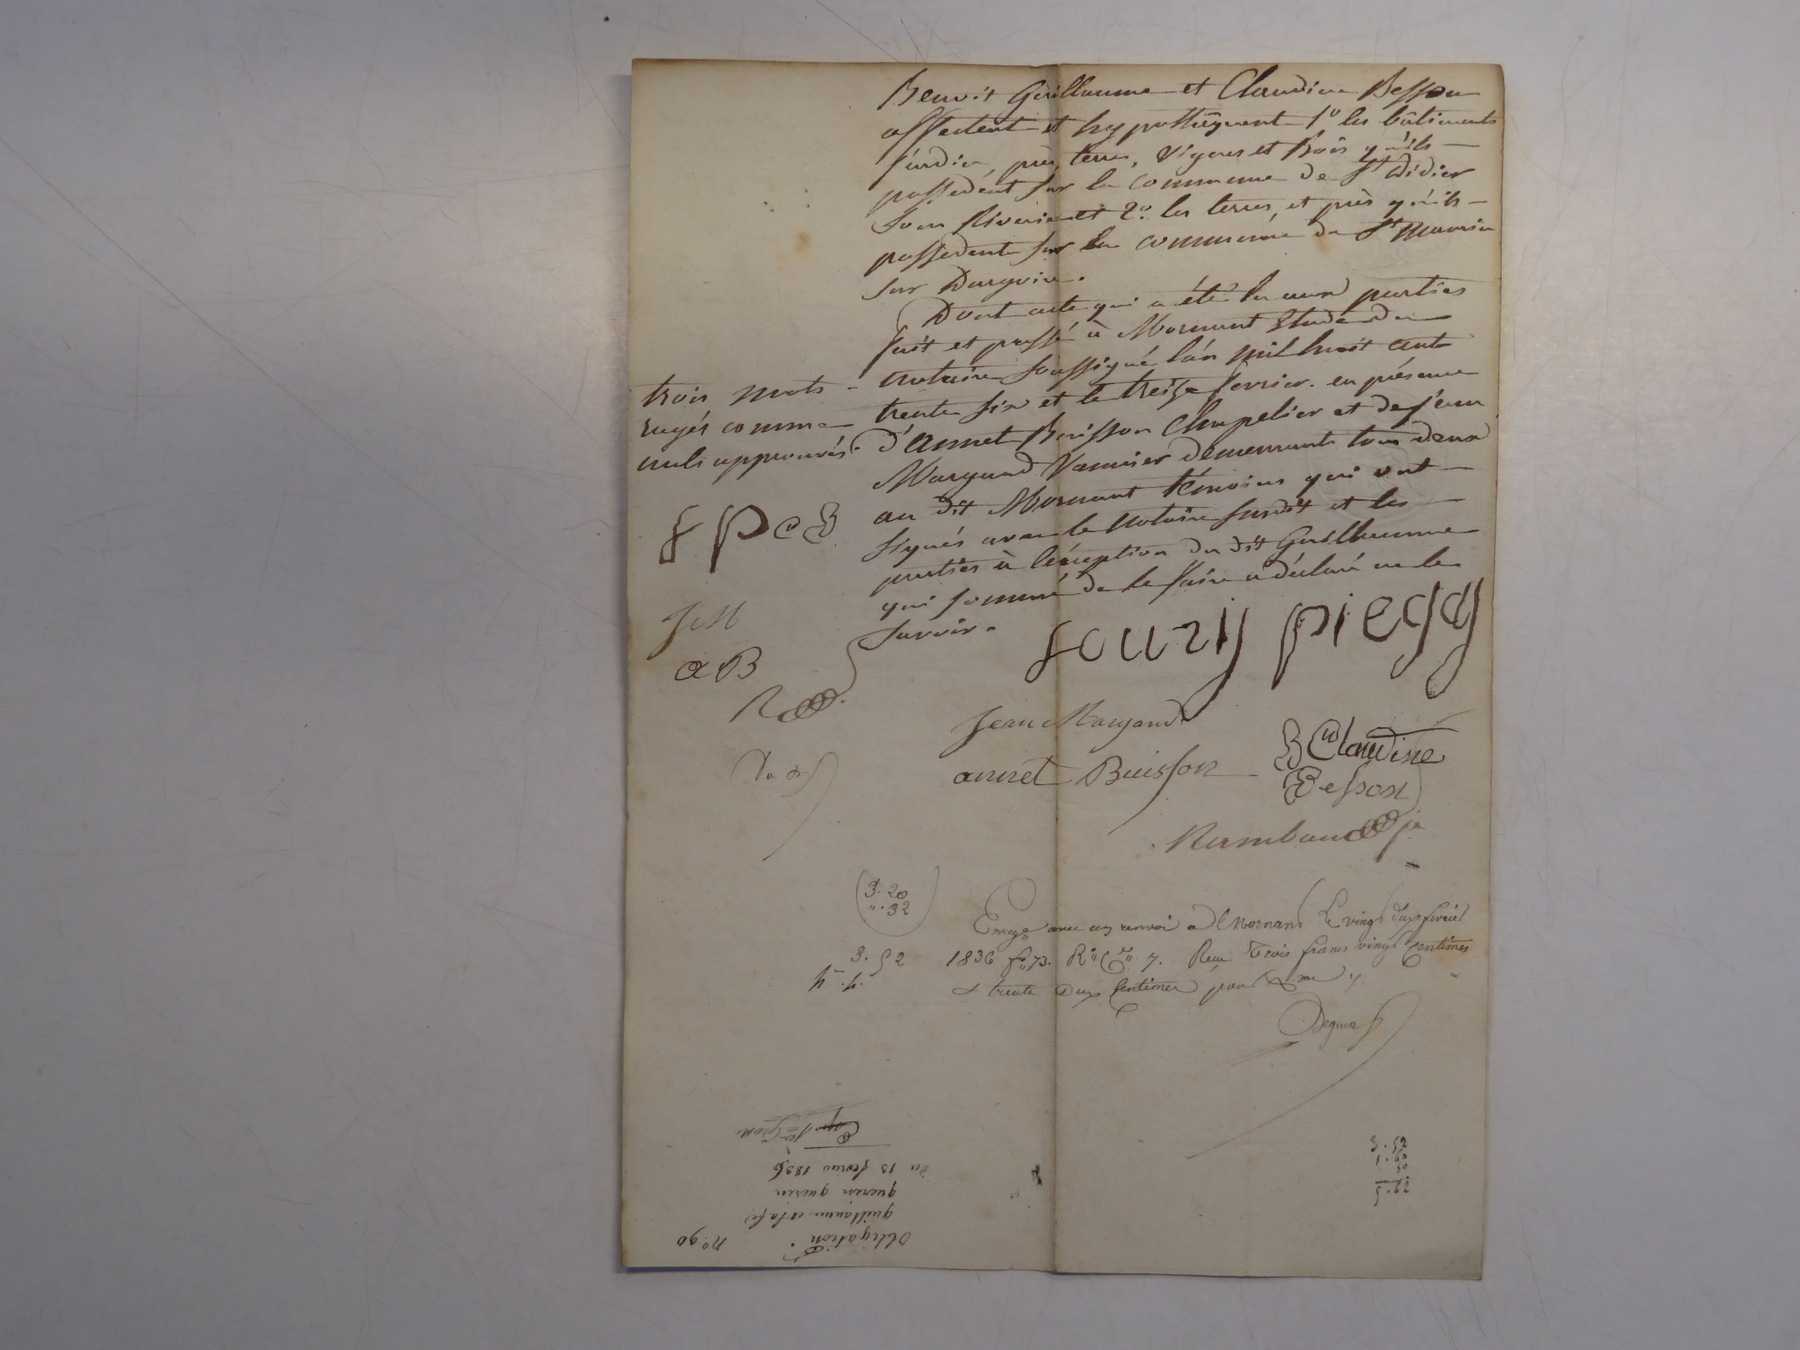 Benoit Guillaume et Claudine Besson
affectent et hypothèquent 1º les bâtiments
jardin, près, terres, vignes et Bois qu'ils
possedent sur la commune de St Didier
sous Riverie et 2º les terres, et près qu'ils
possedent sur la commune de St Maurice
sur Dargoire.
Dont acte qui a été lu aux parties
fait et passé à Mornant Etude du
notaire soussigné l'an mil huit cent
trente six et le treize fevrier. en présence
d'annet Buisson Chapelier et de Jean
Margand Vannier demeurants tous deux
au dit Mornant témoins qui ont
signés avec le notaire susdit et les
parties à l'éxception du dit Guillaume
qui sommé de le faire a déclaré ne le
savoir.
trois mots
rayés comme
nuls approuvés
f p C B
J M
a B
R
fourij piegaÿ
Jean Margand
annet Buisson
B Claudine
Besson
Rambaud jne
3. 20
". 32
3. 52
Enregé avec un renvoi a Mornant Le vingt deux fevrier
1836 fº 73. Rº Cse 7. Reçu trois francs vingt Centimes
& trente deux Centimes pour Xme
3. 52
1. 60
50
5. 62
nº 90
Obligation
guillaume et sa fe
du 13 fevrier 1836